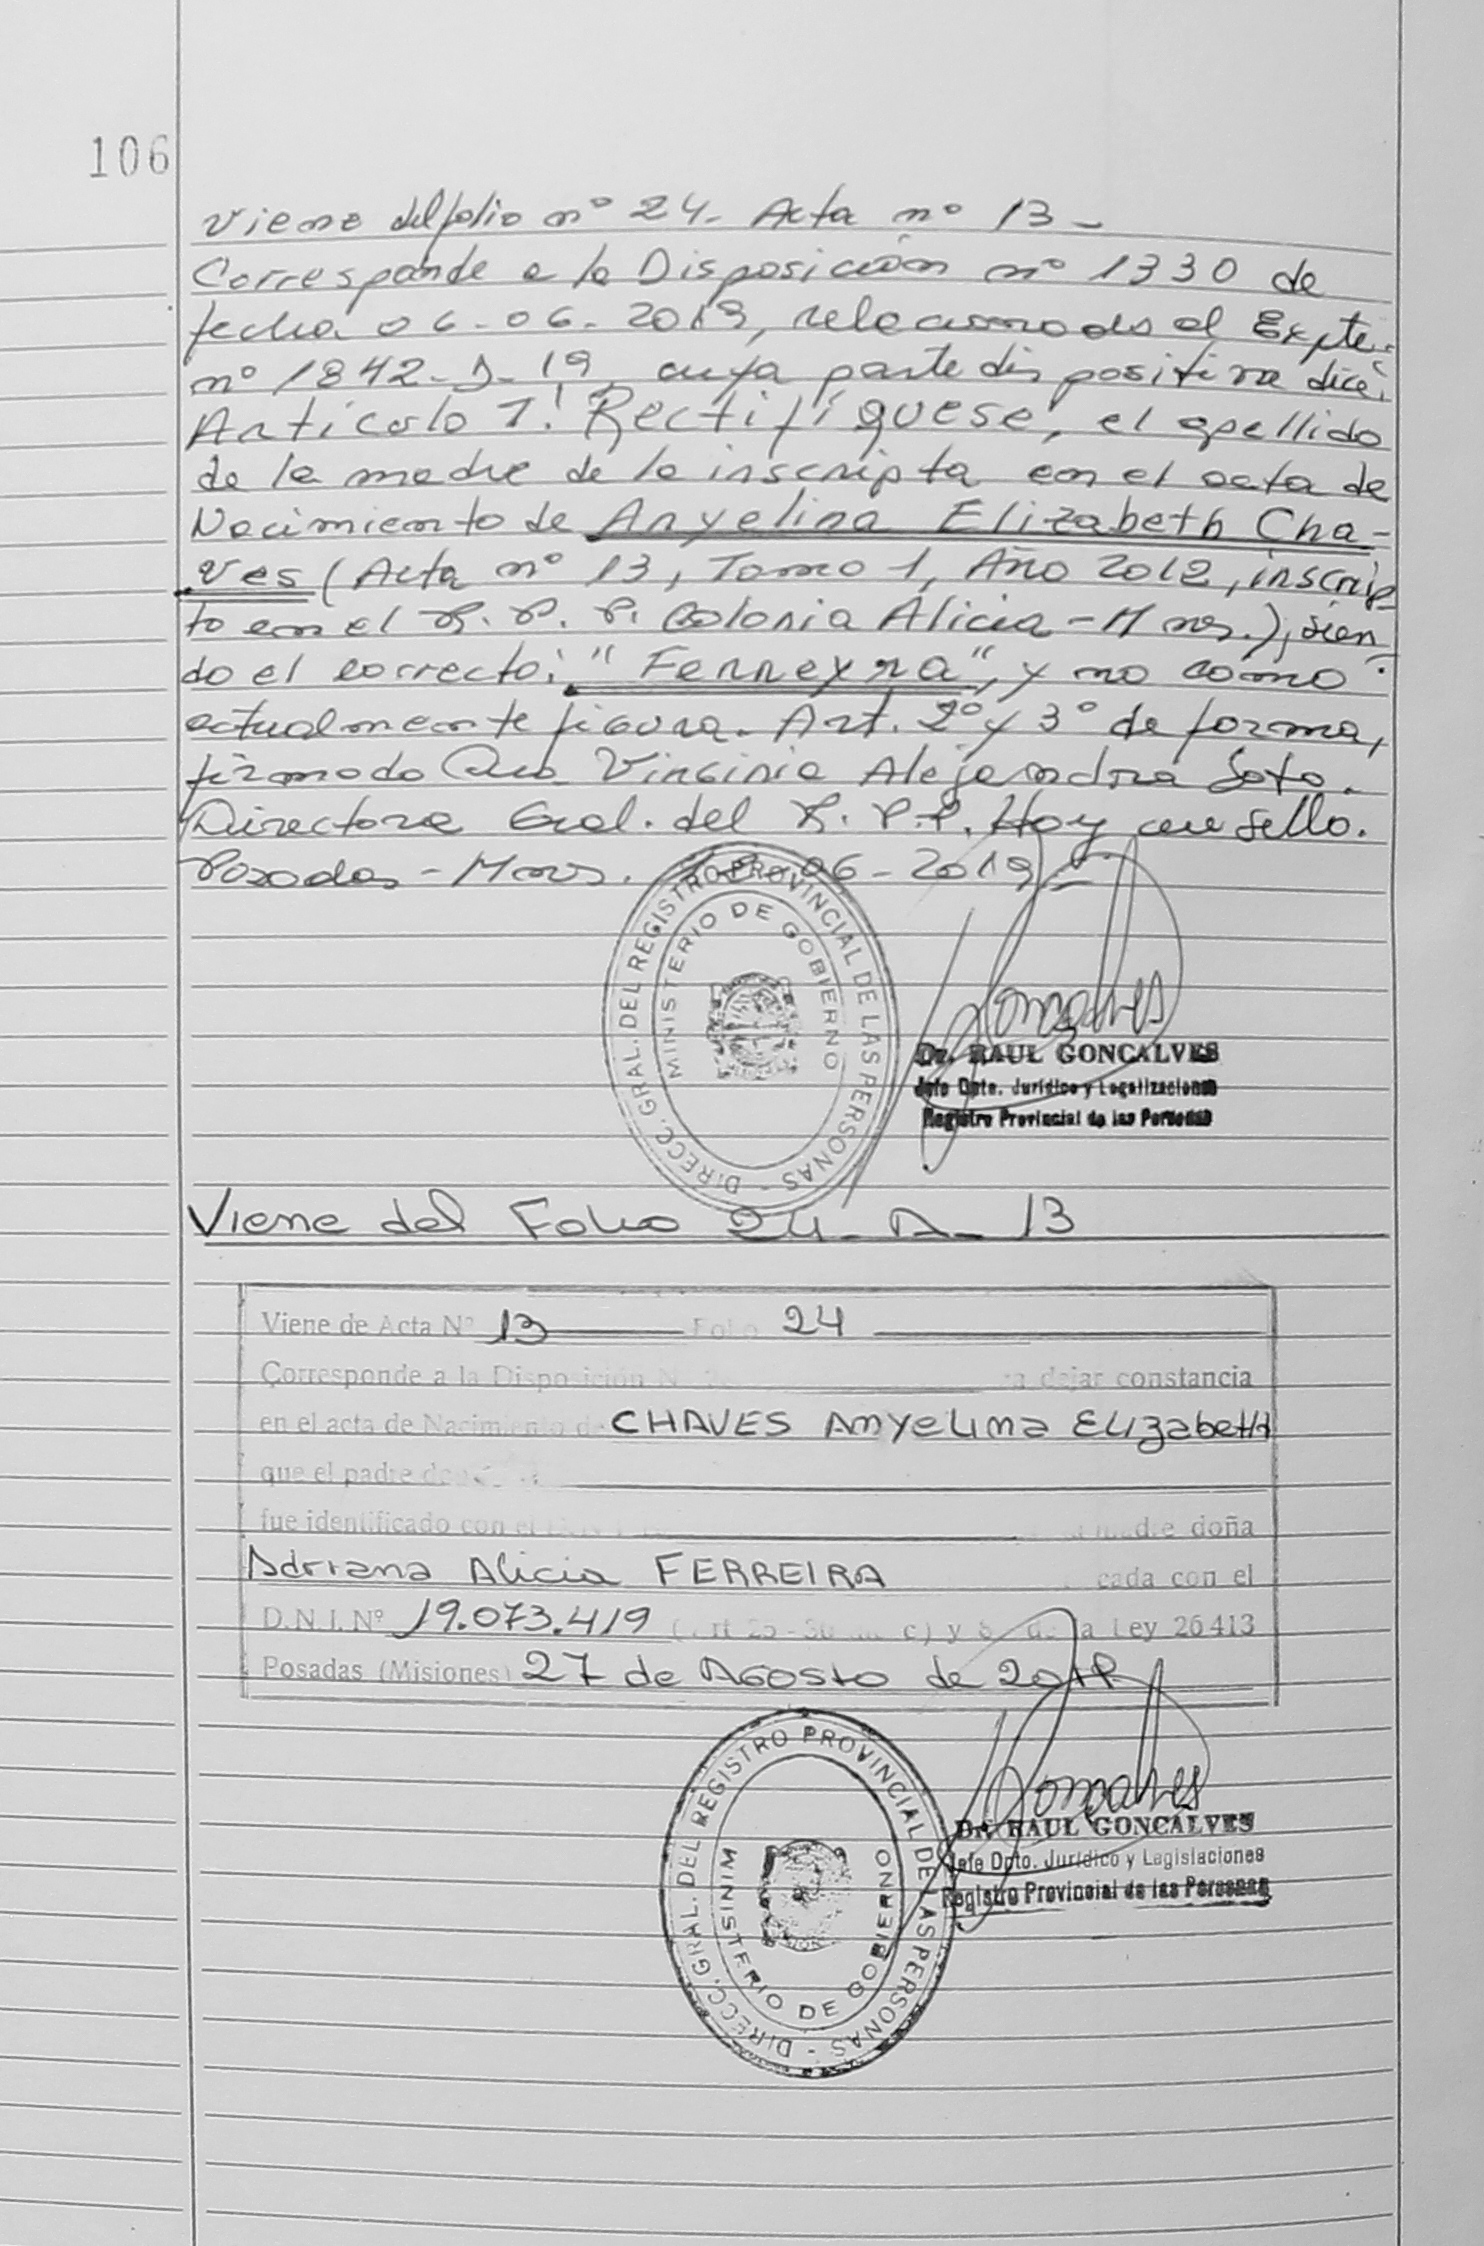 106
Viene del folio nº 24- Acta nº 13-
Corresponde a la Disposición nº 1330 de
fecha 06-06-2019, relacionado al Expte.
nº 1842-D-19, cuya parte dispositiva dice:
Artículo 1: Rectifíquese, el apellido
de la madre de la inscripta en el acta de
Nacimiento de Anyelina Elizabeth Cha-
ves (Acta nº 13, Tomo 1, Año 2012, inscrip-
to en el R. P. P. Colonia Alicia - Mnes.), sien-
do el correcto: "Ferreyra", y no como
actualmente figura. Art. 2º y 3º de forma,
firmado Virginia Alejandra Soto.
Directora Gral. del R. P. P. Hay un sello.
Posadas - Mnes. 06-2019
DIRECC. GRAL. DEL REGISTRO PROVINCIAL DE LAS PERSONAS -
MINISTERIO DE GOBIERNO
Goncalves
Dr. RAUL GONCALVES
Jefe Dpto. Jurídico y Legalizaciones
Registro Provincial de las Personas
Viene del Folio 24- A- 13
Viene de Acta Nº 13 Folio 24
Corresponde a la Disposición N dejar constancia
en el acta de Nacimiento de CHAVES Anyelina Elizabeth
que el padre
fue identificado con el madre doña
Adriana Alicia FERREIRA cada con el
D.N.I. Nº 19.073.419 ( rt 25 - 30 c) y la Ley 26413
Posadas (Misiones) 27 de Agosto de 2018
DIRECC. GRAL. DEL REGISTRO PROVINCIAL DE LAS PERSONAS -
MINISTERIO DE GOBIERNO
Goncalves
Dr. RAUL GONCALVES
Jefe Dpto. Jurídico y Legislaciones
Registro Provincial de las Personas